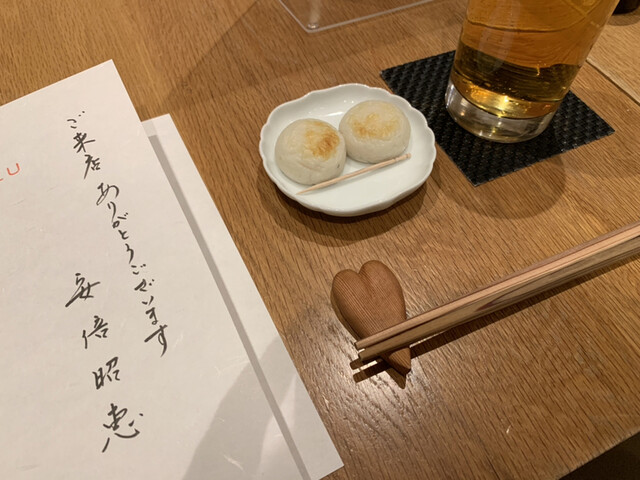 ご来店ありがとうございます
安倍昭恵